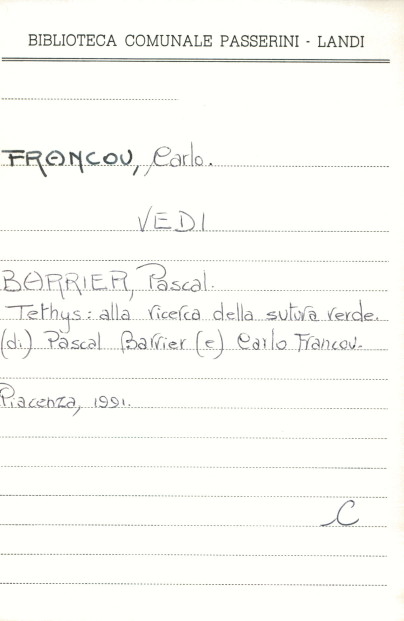 BIBLIOTECA COMUNALE PASSERINI - LANDI
FRANCOU, Carlo.
VEDI
BARRIER, Pascal.
Tethys: alla ricerca della sutura verde.
(di) Pascal Barrier (e) Carlo Francou.
Piacenza, 1991.
C